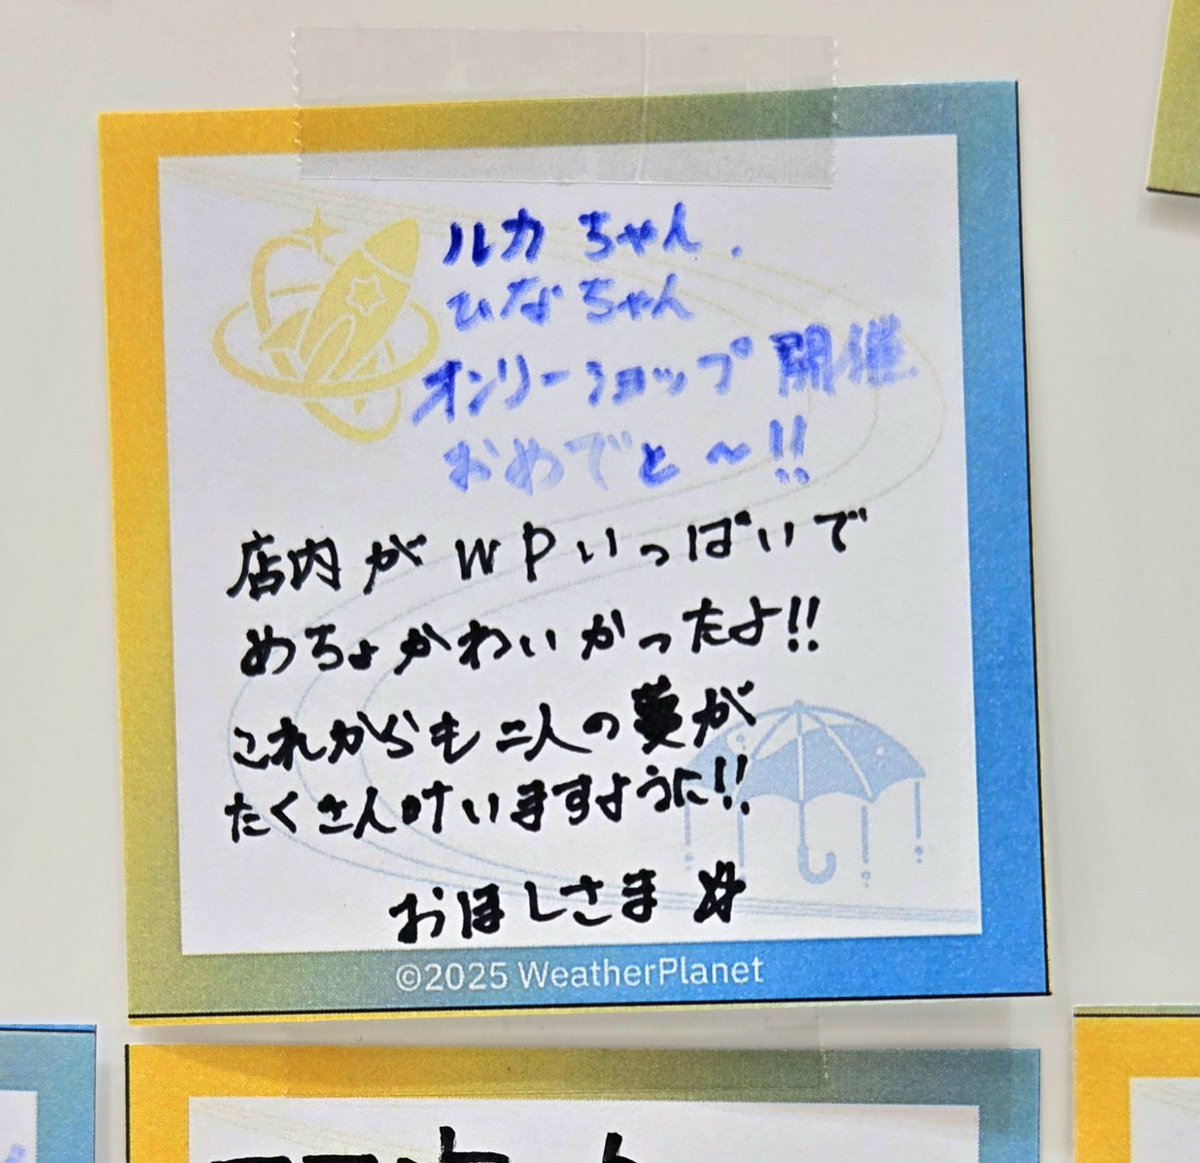 ルカちゃん.
ひなちゃん
オンリーショップ開催
おめでと～!!
店内がWPいっぱいで
めちょかわいかったよ!!
これからも二人の夢が
たくさんけいますように!!
おほしさま☆
©2025 WeatherPlanet